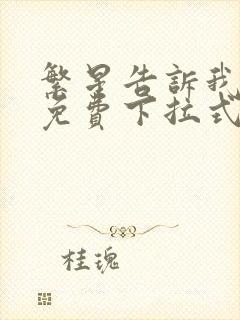 繁星告訴我
免費下拉式
桂瑰